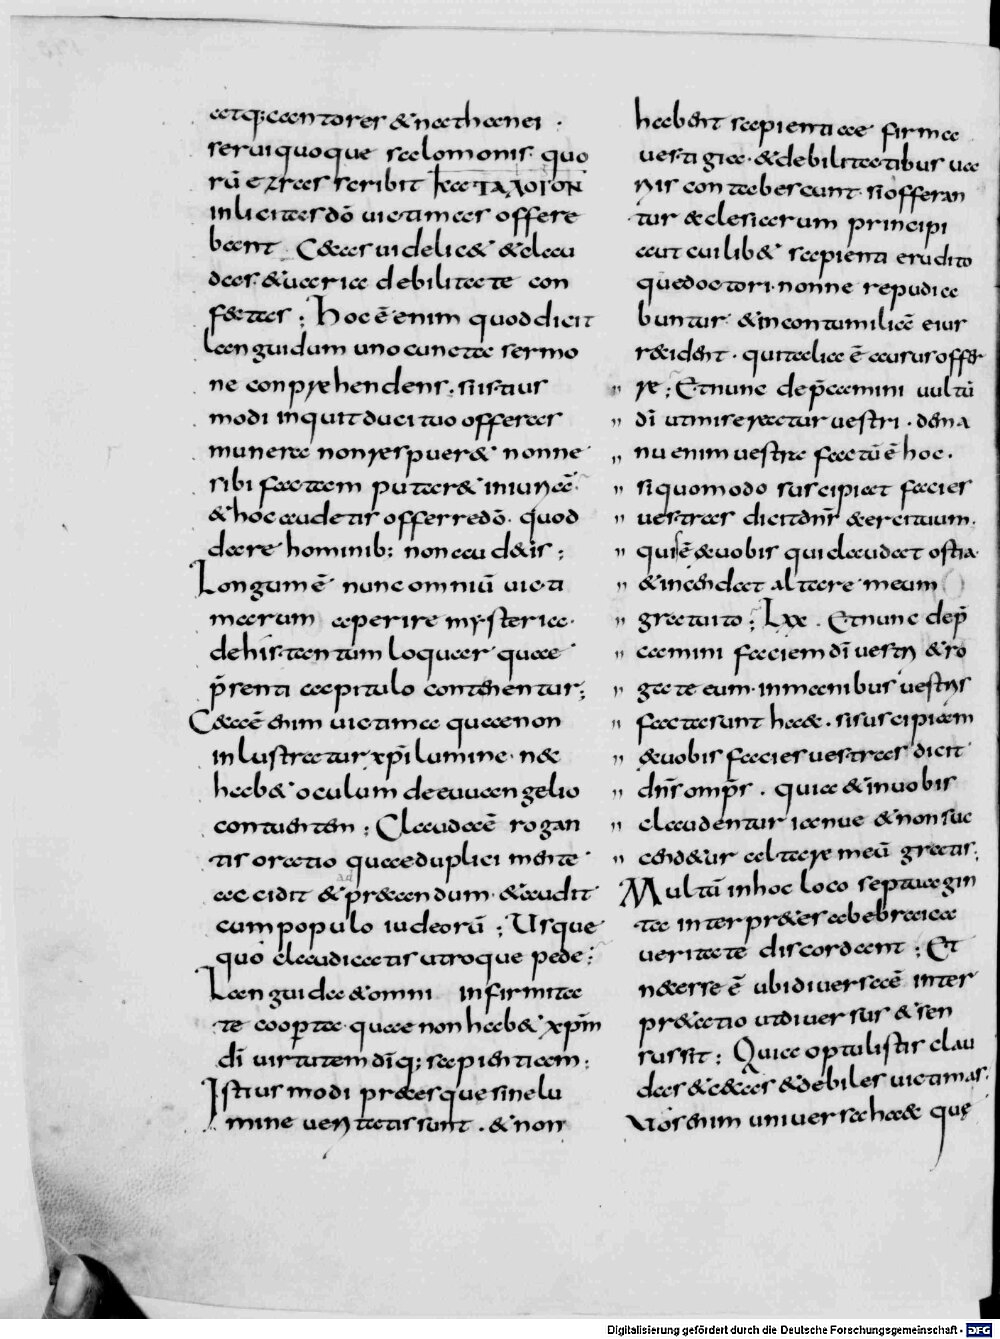 atq; cantores & nathanei ·
serui quoque salomonis· quo
rū ezras scribit ka TAΛOΓON
inlicitas dō uictimas offere
bant. Caecas uidelic& & clau
das· & uaria debilitate con
fectas ; Hoc ē enim quod dicit
languidum uno cuncta sermo
ne conpraehendens· si istius
modi inquit duci tuo offeras
munera non respuer& nonne
sibi factam putar& iniuriā·
& hoc audetis offerre dō· quod
dare hominib; non aud&is ;
Longum ē nunc omniū uicti
marum aperire mysteria·
de his· tantum loquar quae
p̄senti capitulo contenentur ;
Caecā enim uictima quae non
inlustratur xp̄i lumine· nec
hab& oculum de euuangelio
contuentem ; Claudā ē rogan
tis oratio quae duplici mente
accidit ad praecandum· & audit
cum populo iudeorū ; Usque
quo claudicatis utroque pede ;
Languida & omni infirmita
te cooperta· quae non hab& xp̄m
dī uirtutem dīq; sapientiam ;
Istius modi praeces que sine lu
mine ueritatis sunt . & non
habent sapientiae firma
uestigia· & debilitatibus ua
riis contabescunt· si offeran
tur & clesiarum principi
aut cuilib& sapienti erudito
que doctori· nonne repudia
buntur· & in contumiliā eius
recident· qui talia ē ausus offer
re ; Et nunc dep̄camini uultū
dī ut misereatur uestri · de ma
nu enim uestra factū ē hoc .
si quomodo suscipiat facies
uestras dicit dn̄s exercituum·
quis ē & uobis qui claudat ostia
& incendat altare meum
gratuito ; Lxx . Et nunc dep̄
camini faciem dī uestri & ro
gate eum· in manibus uestris
facta sunt haec . si suscipiam
& uobis facies uestras dicit
dn̄s omp̄s . quia & in uobis
claudentur ianue & non suc
cend&ur altare meū gratis ;
Multū in hoc loco septuagin
ta interpr&es ab ebraica
ueritate discordant ; Et
necesse ē ubi diuersa ē inter
pr&atio ut diuersus & sen
sus sit ; Quia optulistis clau
das & caecas & debiles uictimas·
Uos enim uniuersa haec quę